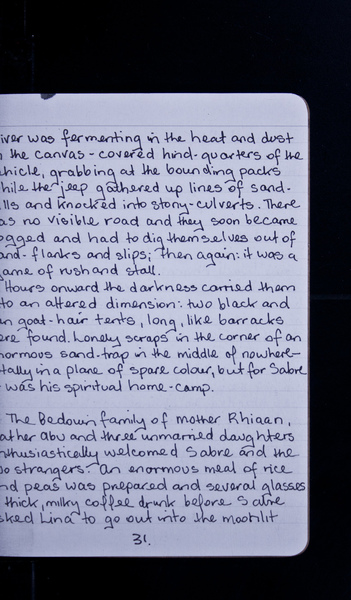 iver was fermenting in the heat and dust
the canvas-covered hind-quarters of the
hicle, grabbing at the bounding packs
hile the jeep gathered up lines of sand-
lls and knocked into stony-culverts. There
as no visible road and they soon became
ogged and had to dig themselves out of
and-flanks and slips; then again: it was a
ame of rush and stall.
Hours onward the darkness carried them
to an altered dimension: two black and
n goat-hair tents, long, like barracks
ere found. Lonely scraps in the corner of an
normous sand-trap in the middle of nowhere-
tally in a plane of spare colour, but for Sabre
was his spiritual home-camp.
The Bedouin family of mother Rhiaan,
ather Abu and three unmarried daughters
nthusiastically welcomed Sabre and the
o strangers. An enormous meal of rice
nd peas was prepared and several glasses
thick, milky coffee drunk before Sabre
sked Lina to go out into the moonlit
31.